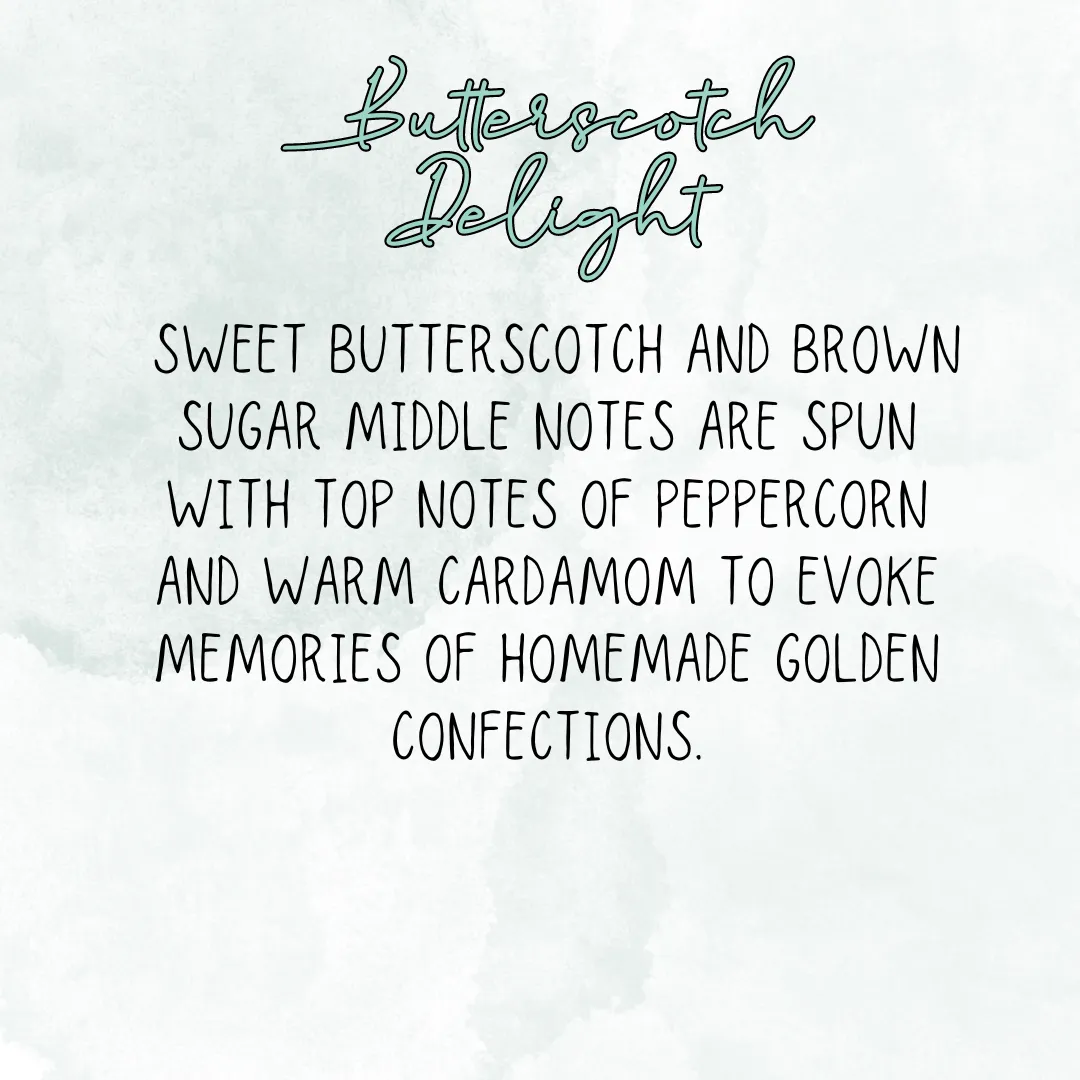 Butterscotch
Delight
SWEET BUTTERSCOTCH AND BROWN
SUGAR MIDDLE NOTES ARE SPUN
WITH TOP NOTES OF PEPPERCORN
AND WARM CARDAMOM TO EVOKE
MEMORIES OF HOMEMADE GOLDEN
CONFECTIONS.